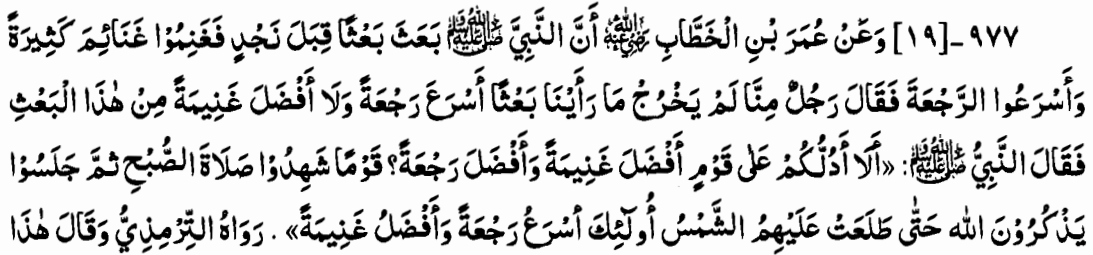 ٩٧٧ـ[١٩] وَعَنْ عُمَرَ بْنِ الْخَطَّابِ رَضِيَ اللهُ عَنْهُ أَنَّ النَّبِيَّ ﷺ بَعَثَ بَعْثًا قِبَلَ نَجْدٍ فَغَنِمُوْا غَنَائِمَ كَثِيرَةً
وَأَسْرَعُوا الرَّجْعَةَ فَقَالَ رَجُلٌ مِنَّا لَمْ يَخْرُجْ مَا رَأَيْنَا بَعْثًا أَسْرَعَ رَجْعَةً وَلَا أَفْضَلَ غَنِيمَةً مِنْ هٰذَا الْبَعْثِ
فَقَالَ النَّبِيُّ ﷺ: «أَلَا أَدُلُّكُمْ عَلٰى قَوْمٍ أَفْضَلَ غَنِيمَةً وَأَفْضَلَ رَجْعَةً؟ قَوْمًا شَهِدُوْا صَلَاةَ الصُّبْحِ ثمَّ جَلَسُوْا
يَذْكُرُوْنَ الله حَتّٰى طَلَعَتْ عَلَيْهِمُ الشَّمْسُ أُولٰٓئِكَ أسْرَعُ رَجْعَةً وَأَفْضَلُ غَنِيمَةً» . رَوَاهُ التِّرْمِذِيُّ وَقَالَ هٰذَا